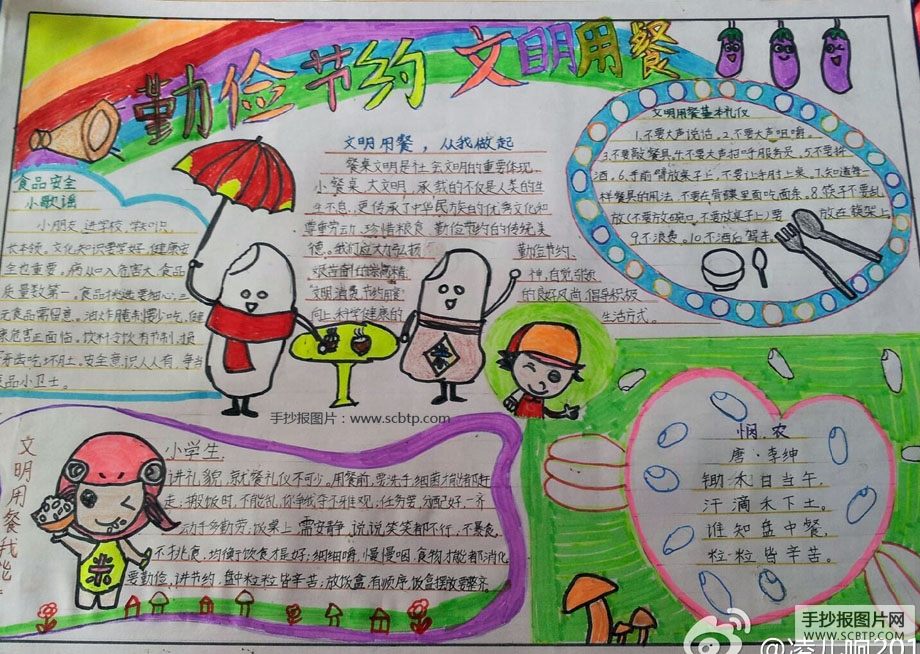 勤俭节约 文明用餐
食品安全
小歌谣
小朋友 进学校,
长本领。文化知识要学好,健康安
全也重要,病从口入危害大,食品
质量数第一。食品挑选要细心,三
无食品需留意。油炸腌制要少吃,健
康危害正面临。饮料冷饮有节制,损
牙齿吃坏肚。安全意识人人有 争当
食品小卫士。
文明用餐,从我做起
餐桌文明是社会文明的重要体现。
小餐桌,大文明,承载的不仅是人类的生
生不息,更传承了中华民族的优秀文化和
尊重劳动、珍惜粮食、勤俭节约的传统美
德。我们应大力弘扬 勤俭节约
艰苦奋斗的 精 神,自觉
"文明消费 节约用餐" 的良好风尚,倡导积极
向上 科学健康的 生活方式。
文明用餐基本礼仪
1.不要大声说话。2.不要大声咀嚼。
3.不要敲餐具。4.不要大声招呼服务员。5.不要
酒。6.手前臂放桌子上,不要让手肘上桌。7.知道
样餐具的用法,不要在骨碟里面吃面条。8.筷子不要乱
放(不要放在碗口,不要放桌子上)要 放在筷架上
9.不浪费。10.不酒后驾车。
米
手抄报图片:www.scbtp.com
文明用餐我能
米
小学生,
讲礼貌,就餐礼仪不可少。用餐前,要洗手,细菌
走。搬饭时,不能乱,你争我夺不雅观。任务要分配好,一齐
动手多勤劳。饭桌上,需安静,说说笑笑都不行,不暴食,
不挑食,均衡饮食才是好;细细嚼,慢慢咽,食物才能都消化
要勤俭,讲节约,盘中粒粒皆辛苦;放饭盒,有顺序,饭盒摆放要整齐。
悯 农
唐·李绅
锄禾日当午,
汗滴禾下土。
谁知盘中餐,
粒粒皆辛苦。
手抄报图片网
WWW.SCBTP.COM